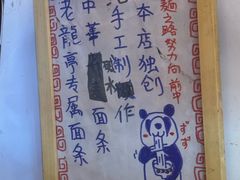 麺之路努力向前中
本店独创
手工制作
中華 面条
老龍亭专属面条
ずずず